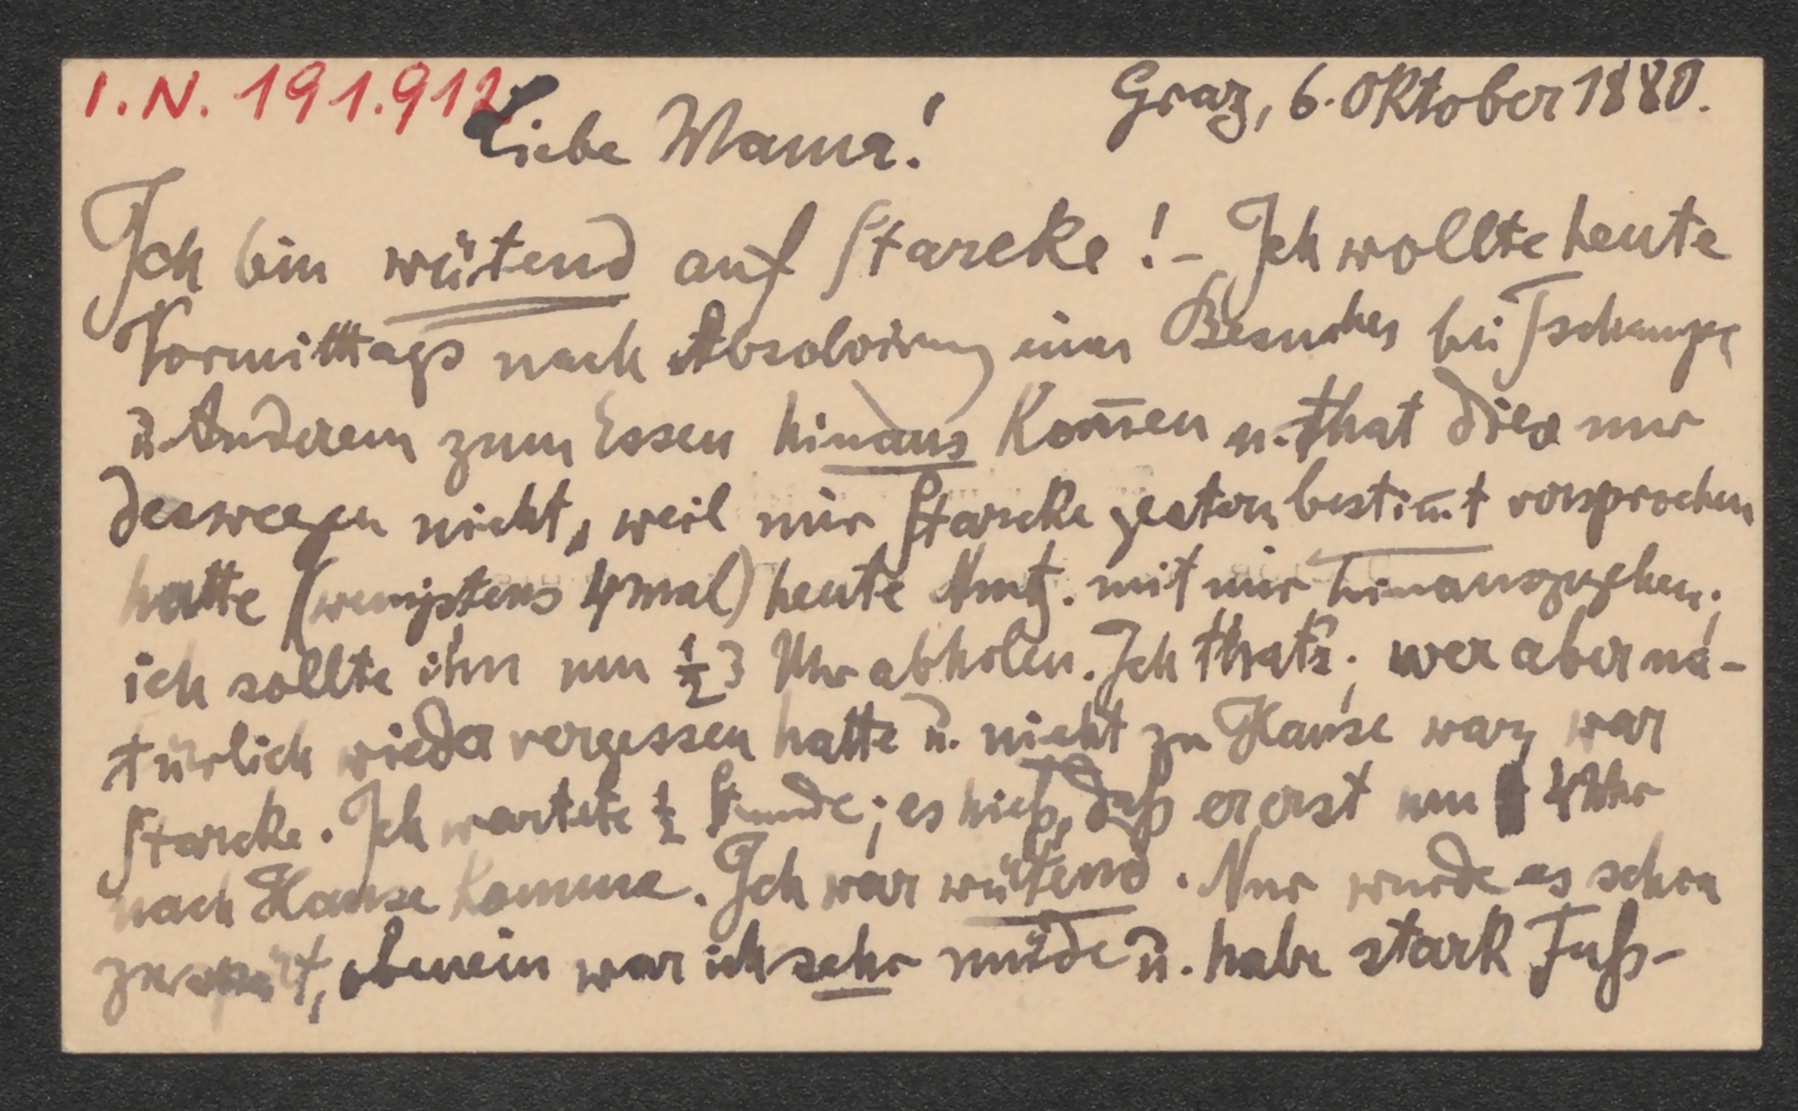 I.N. 191.912
Graz, 6. Oktober 1880.
Liebe Mama!
Ich bin wütend auf Starcke! – Ich wollte heute
Vormittags nach Absolvirung eines Besuches bei
u. Anderem zum Essen hinaus kom̄en u. that dies nur
deswegen nicht, weil mir Starcke gestern bestim̄t versprochen
hatte (wenigstens 4mal) heute Nmtg. mit mir hinauszugehen;
ich sollte ihn um ½3 Uhr abholen. Ich that's; wer aber na-
türlich wieder vergessen hatte u. nicht zu Hause war, war
Starcke. Ich wartete ½ Stunde; es hieß, daß er erst um 4 Uhr
nach Hause komme. Ich war wütend. Nur wurde es schon
zu spät, obenein war ich sehr müde u. habe stark Fuß-